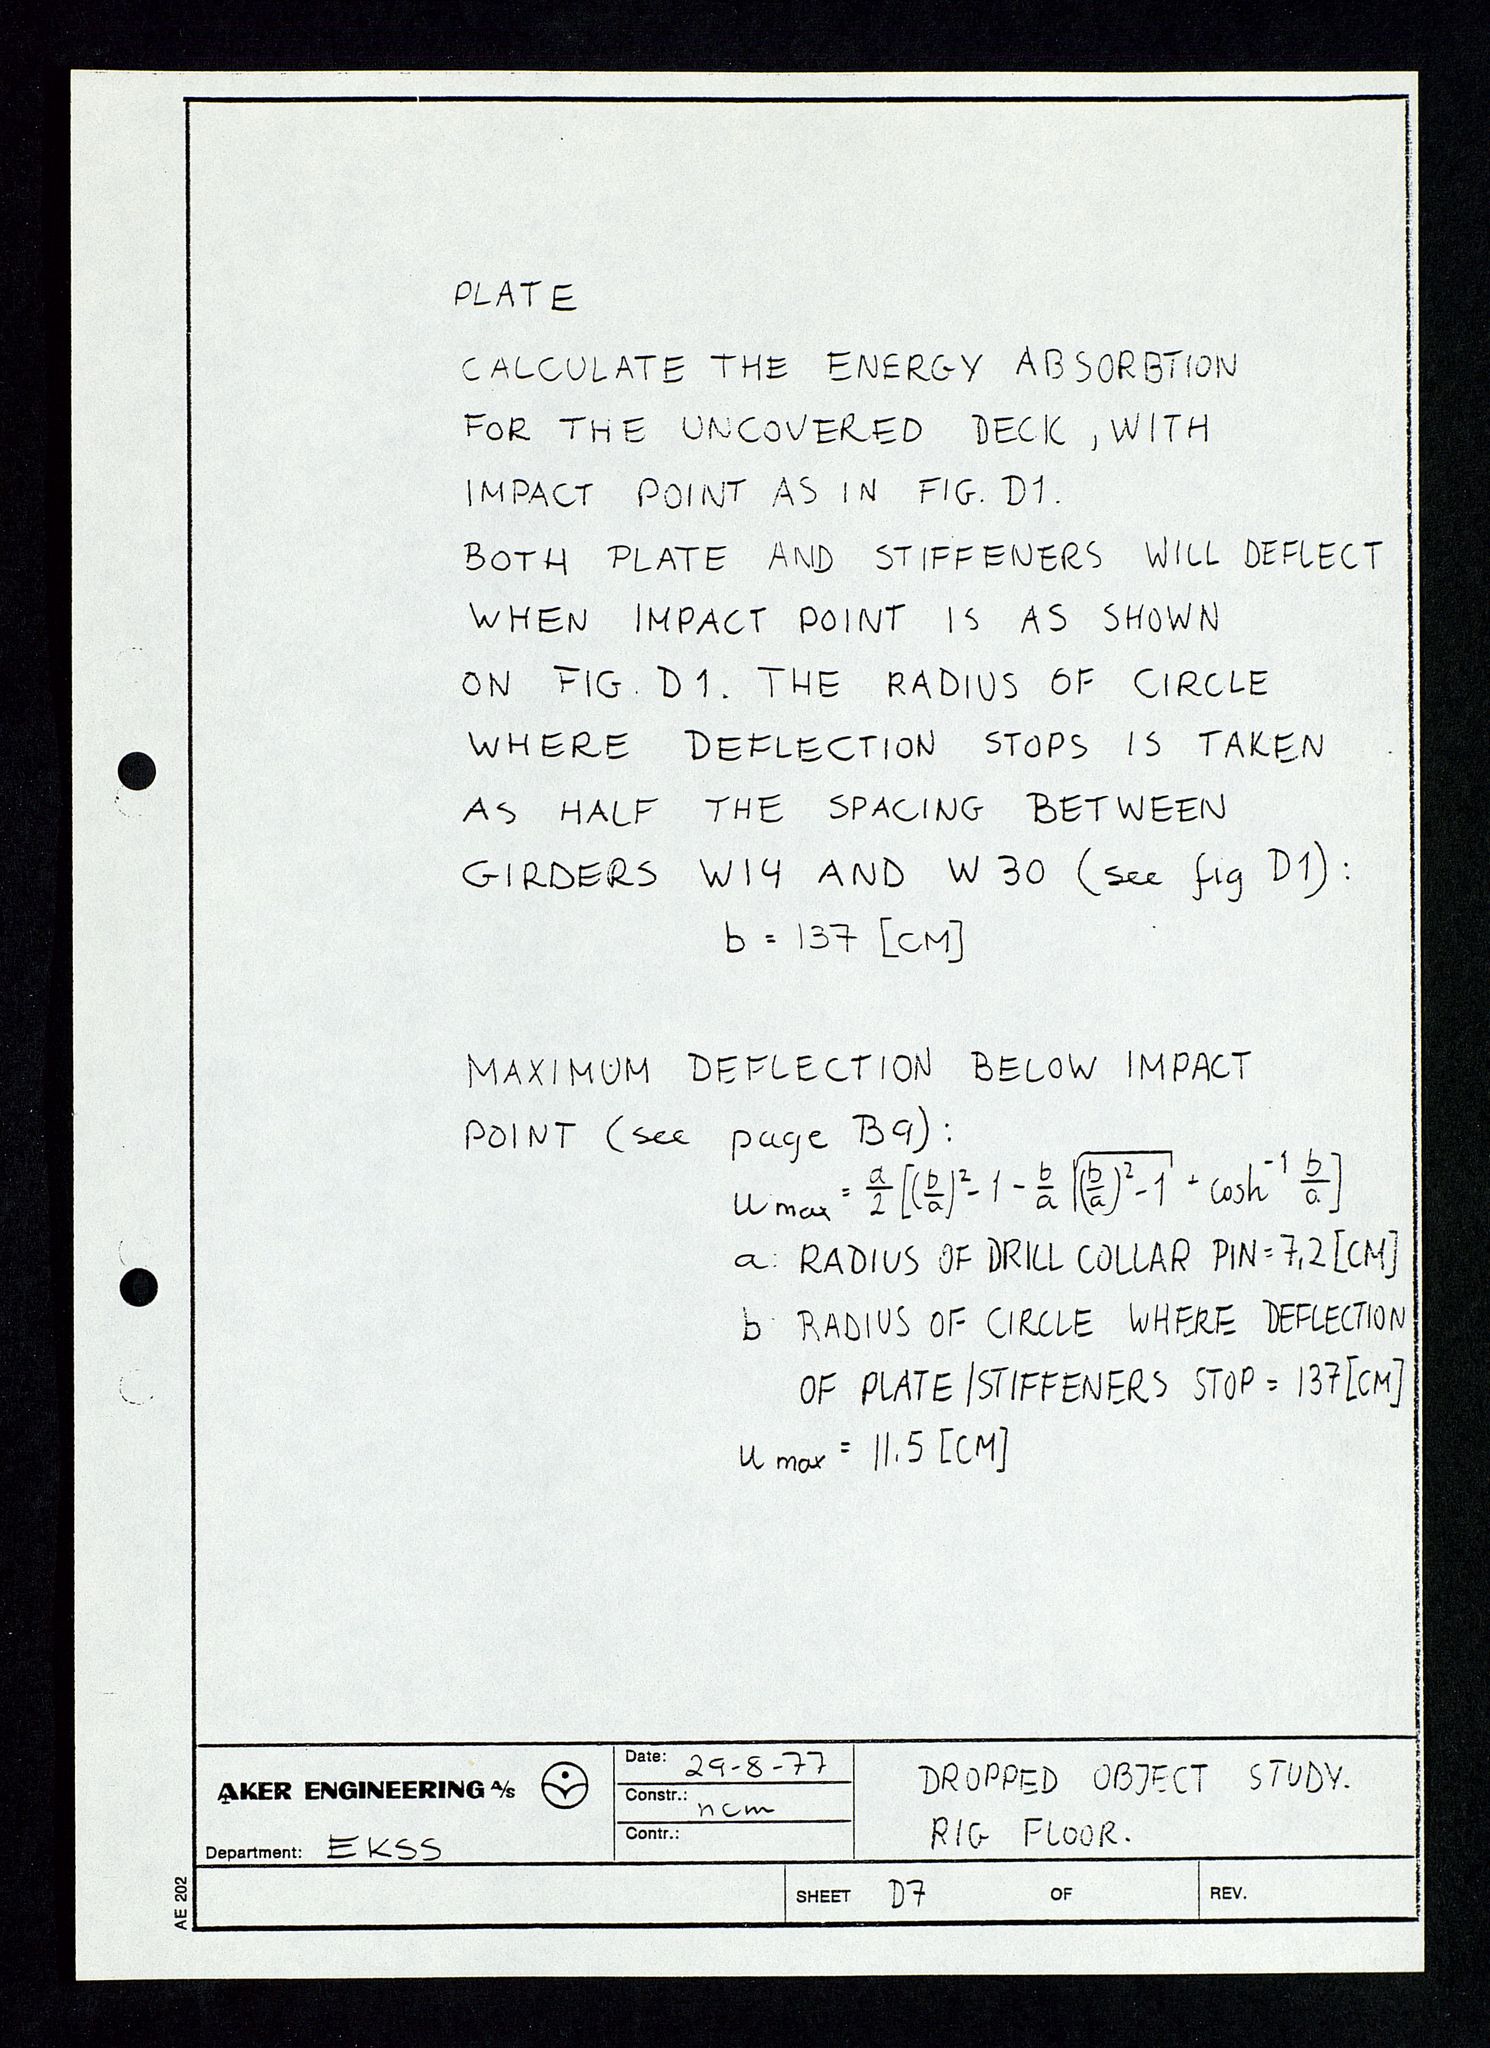 PLATE
CALCULATE THE ENERGY ABSORBTION
FOR THE UNCOVERED DECK, WITH
IMPACT POINT AS IN FIG. D1.
BOTH PLATE AND STIFFENERS WILL DEFLECT
WHEN IMPACT POINT IS AS SHOWN
ON FIG. D1. THE RADIUS OF CIRCLE
WHERE DEFLECTION STOPS IS TAKEN
AS HALF THE SPACING BETWEEN
GIRDERS W14 AND W30 (see fig D1):
b = 137 [CM]
MAXIMUM DEFLECTION BELOW IMPACT
POINT (see page B9):
u max = a/2 [(b/a)² - 1 - b/a √((b/a)² - 1) + cosh⁻¹ b/a]
a: RADIUS OF DRILL COLLAR PIN = 7,2 [CM]
b: RADIUS OF CIRCLE WHERE DEFLECTION
OF PLATE/STIFFENERS STOP = 137 [CM]
u max = 11.5 [CM]
AKER ENGINEERING A/S
Department: EKSS
Date: 29-8-77
Constr.: ncm
Contr.:
DROPPED OBJECT STUDY.
RIG FLOOR.
SHEET D7 OF
REV.
AE 202